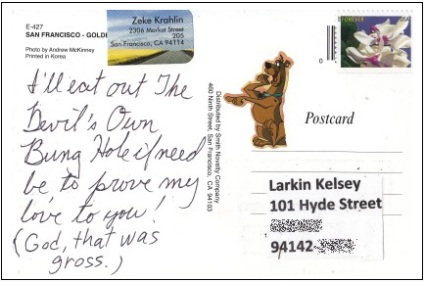 E-427
SAN FRANCISCO - GOLD
Photo by Andrew McKinney
Printed in Korea
Zeke Krahlin
2306 Market Street
205
San Francisco, CA 94114
FOREVER
0
I'll eat out The
Devil's Own
Bung Hole if need
be to prove my
love to you!
(God, that was
gross.)
Distributed by Smith Novelty Company
460 Ninth Street, San Francisco, CA 94103
Postcard
Larkin Kelsey
101 Hyde Street
94142-